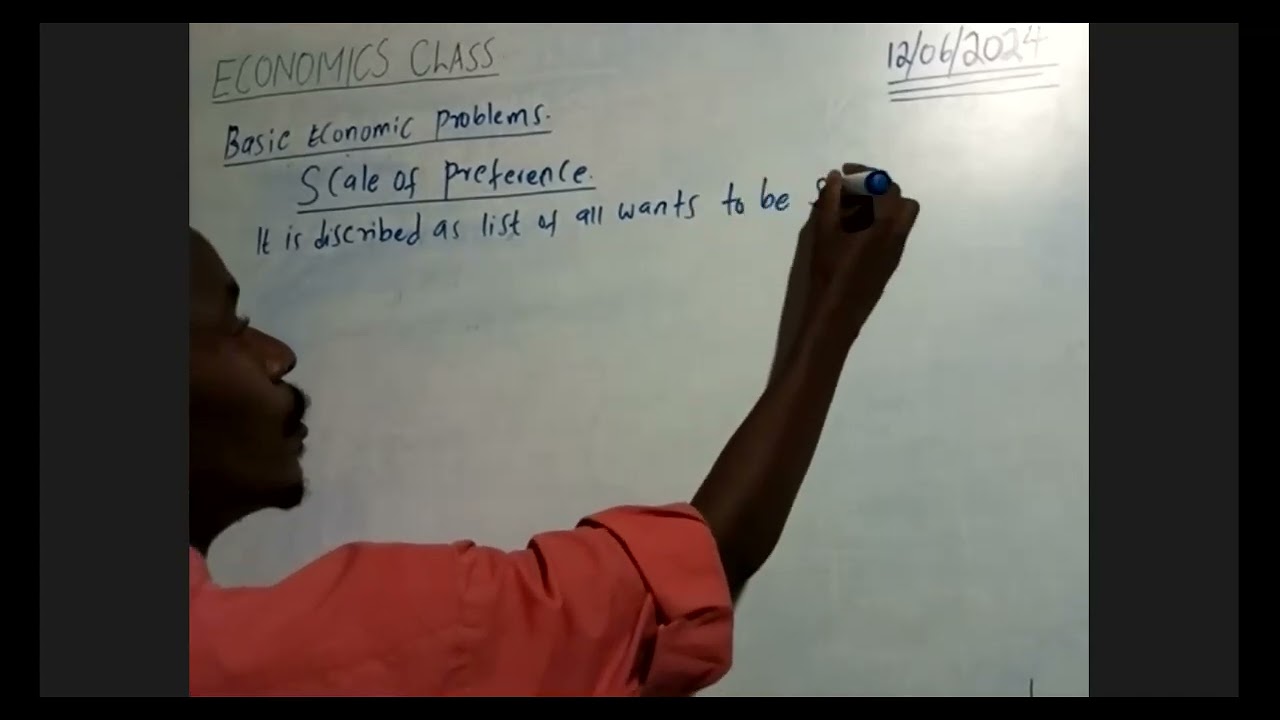 ECONOMICS CLASS
12/06/2024
Basic Economic Problems.
Scale of Preference.
It is discribed as list of all wants to be